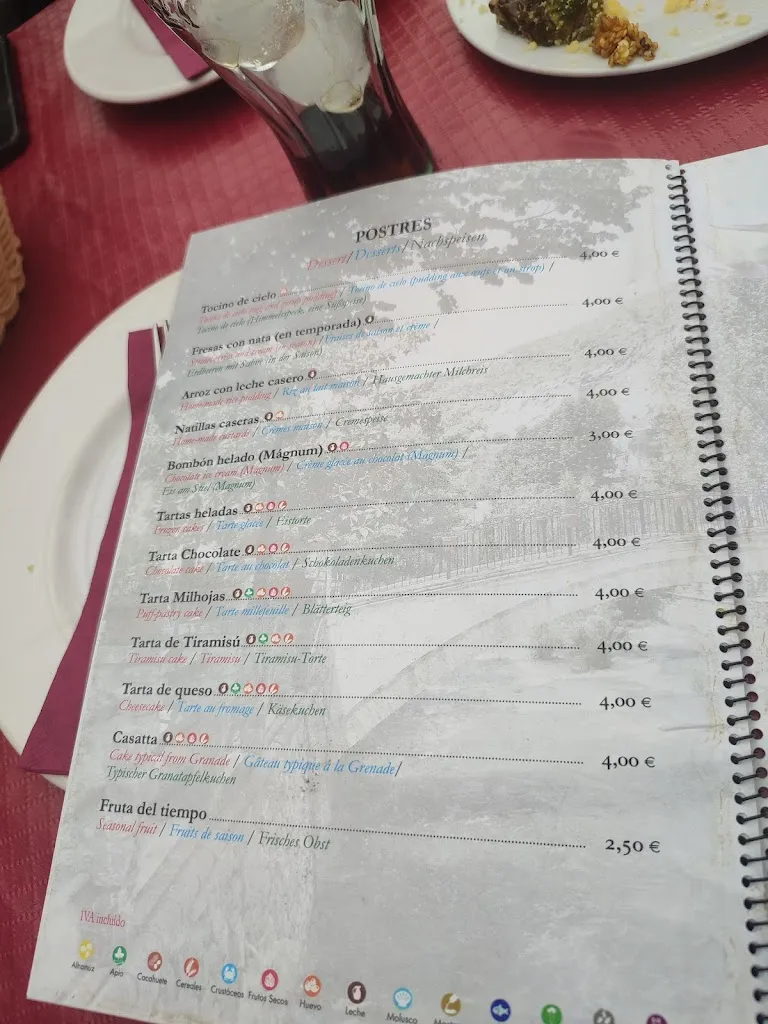 POSTRES
Dessert/Desserts/Nachspeisen
Tocino de cielo 4,00 €
Tocino de cielo (pudding aux œufs et au sirop) /
Tocino de cielo (Himmelsspeck, eine Süßspeise)
Fresas con nata (en temporada) 4,00 €
Fraises de saison et crème /
Erdbeeren mit Sahne (in der Saison)
Arroz con leche casero 4,00 €
Home-made rice pudding / Riz au lait maison / Hausgemachter Milchreis
Natillas caseras 4,00 €
Home-made custards / Crèmes maison / Cremespeise
Bombón helado (Mágnum) 3,00 €
Chocolate ice cream (Magnum) / Crème glacée au chocolat (Magnum) /
Eis am Stiel (Magnum)
Tartas heladas 4,00 €
Frozen cakes / Tarte glacée / Eistorte
Tarta Chocolate 4,00 €
Chocolate cake / Tarte au chocolat / Schokoladenkuchen
Tarta Milhojas 4,00 €
Puff-pastry cake / Tarte millefeuille / Blätterteig
Tarta de Tiramisú 4,00 €
Tiramisu cake / Tiramisu / Tiramisu-Torte
Tarta de queso 4,00 €
Cheesecake / Tarte au fromage / Käsekuchen
Casatta 4,00 €
Cake typical from Granade / Gâteau typique à la Grenade/
Typischer Granatapfelkuchen
Fruta del tiempo 2,50 €
Seasonal fruit / Fruits de saison / Frisches Obst
IVA incluido
Altramuz Apio Cacahuete Cereales Crustáceos Frutos Secos Huevo Leche Molusco